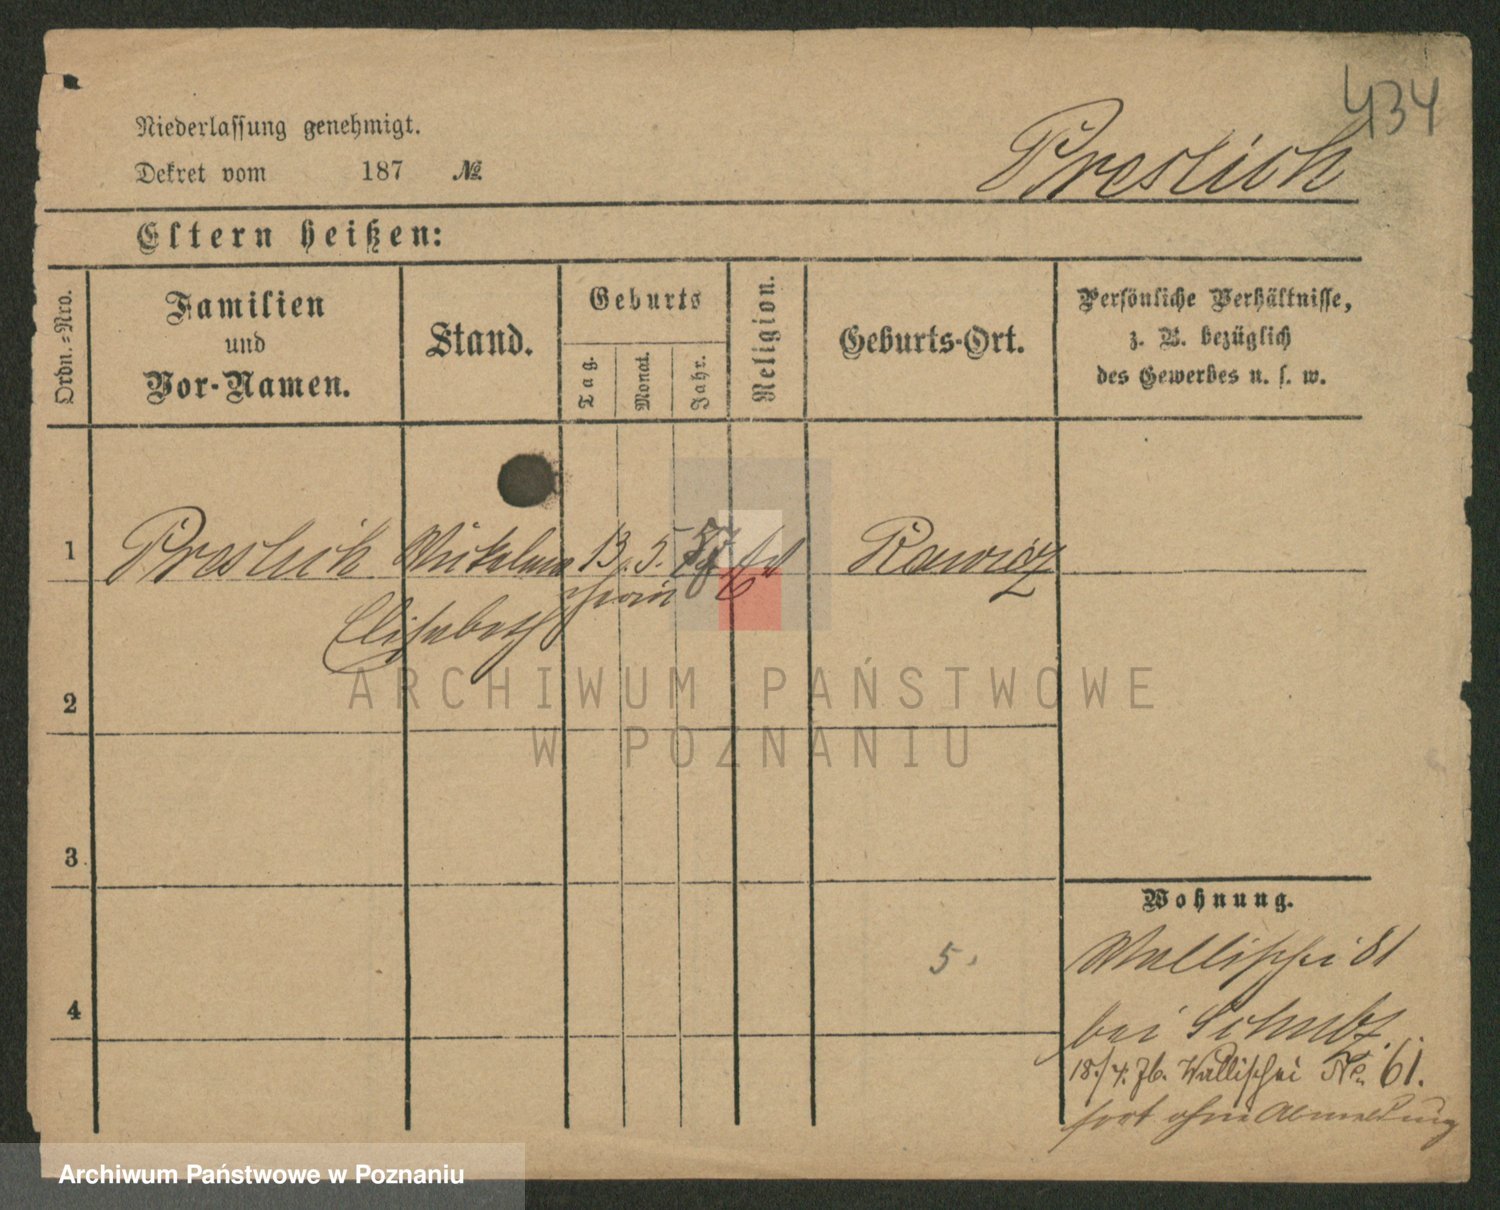 434
Niederlassung genehmigt.
Dekret vom 187 №
Preslich
Eltern heißen:
Ordn.-Nro.
Familien
und
Vor-Namen.
Stand.
Geburts
Tag.
Monat.
Jahr.
Religion.
Geburts-Ort.
Persönliche Verhältnisse,
z. B. bezüglich
des Gewerbes u. s. w.
1 Preslich 13. 5. 57 Rawicz
Elisabeth
2
3
4
5.
Wohnung.
Wallischei 81
bei Schulz
18./4. 76. Wallischei No. 61.
fort ohne Abmeldung
ARCHIWUM PAŃSTWOWE
W POZNANIU
Archiwum Państwowe w Poznaniu